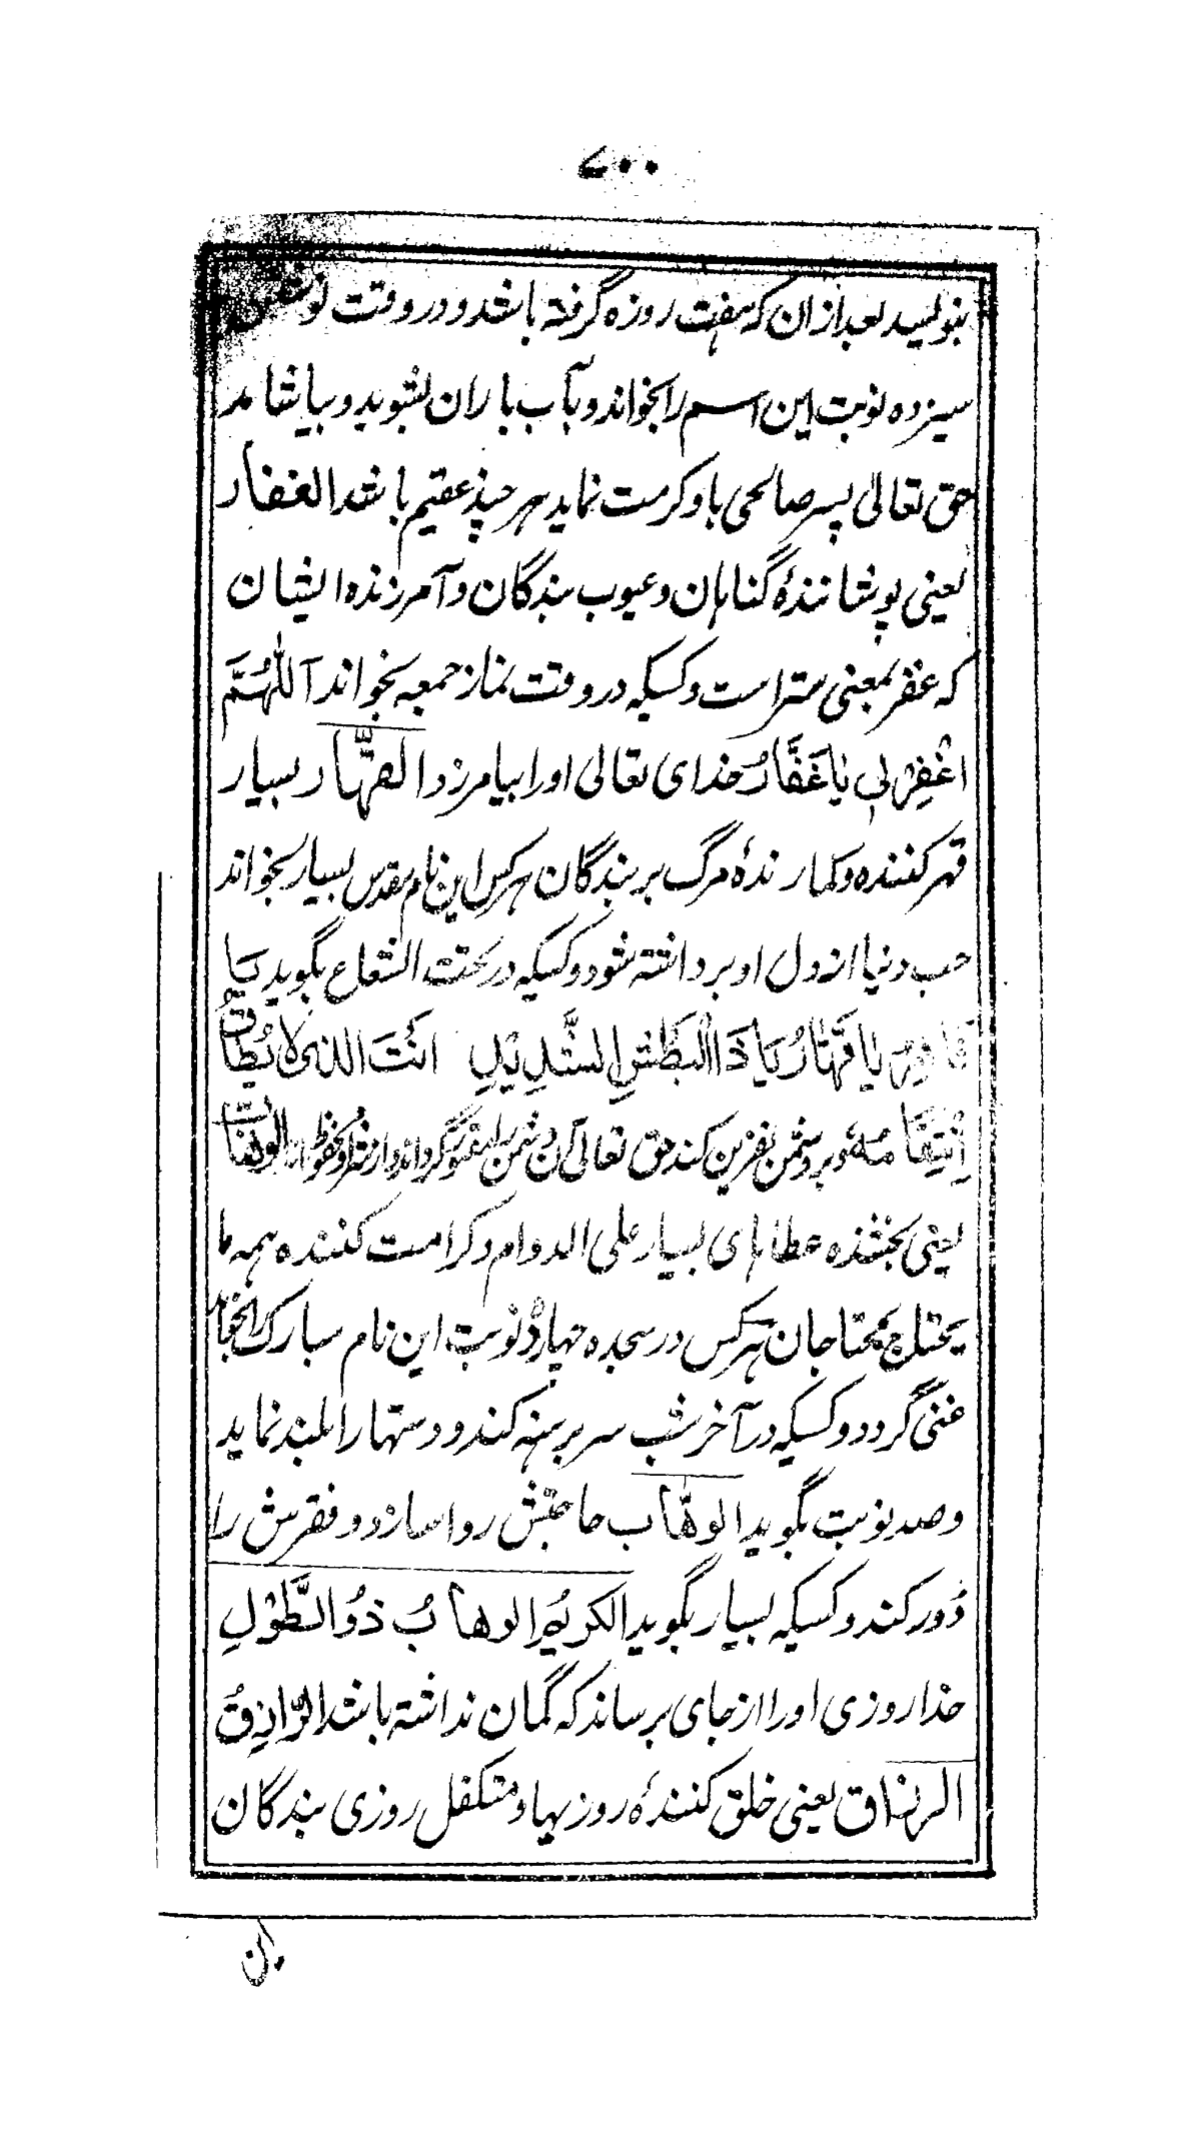 ۷۰۰
بنویسد بعد از ان که هفت روزه گرفته باشد و در وقت نوشتن
سیزده نوبت این اسم را بخواند و بآب باران بشوید و بیاشامد
حق تعالی پسر صالحی باو کرمت نماید هر چند عقیم باشد الغفار
یعنی پوشانندهٔ گناهان و عیوب بندگان و آمرزنده ایشان
که غفر بمعنی ستر است و کسیکه در وقت نماز جمعه بخواند اَللّٰهُمَّ
اغْفِرْ لِی یَا غَفَّارُ خدای تعالی او را بیامرزد القهّار بسیار
قهر کننده و کمارندهٔ مرگ بر بندگان هر کس این نام مقدس بسیار بخواند
حب دنیا از دل او برداشته شود و کسیکه در تحت الشعاع بگوید یَا
قَاهِرُ یَا قَهَّارُ یَا ذَا الْبَطْشِ الشَّدِیْدِ اَنْتَ الَّذِی لَا یُطَاقُ
اِنْتِقَامُهُ و بر دشمن نفرین کند حق تعالی آن دشمن را مقهور گرداند و از شر او محفوظ الوهاب
یعنی بخشنده عطاهای بسیار علی الدوام و کرامت کننده همه ما
یحتاج بمحتاجان هر کس در سجده چهارده نوبت این نام مبارک را بخواند
غنی گردد و کسیکه در آخر شب سر برهنه کند و دستها را بلند نماید
و صد نوبت بگوید الوهّاب حاجتش روا سازد و فقرش را
دُور کند و کسیکه بسیار بگوید الکریمُ الوهابُ ذُو الطَّوْلِ
خدا روزی او را از جای برساند که گمان نداشته باشد الرَّازِقُ
الرزاق یعنی خلق کنندهٔ روزیها و متکفل روزی بندگان